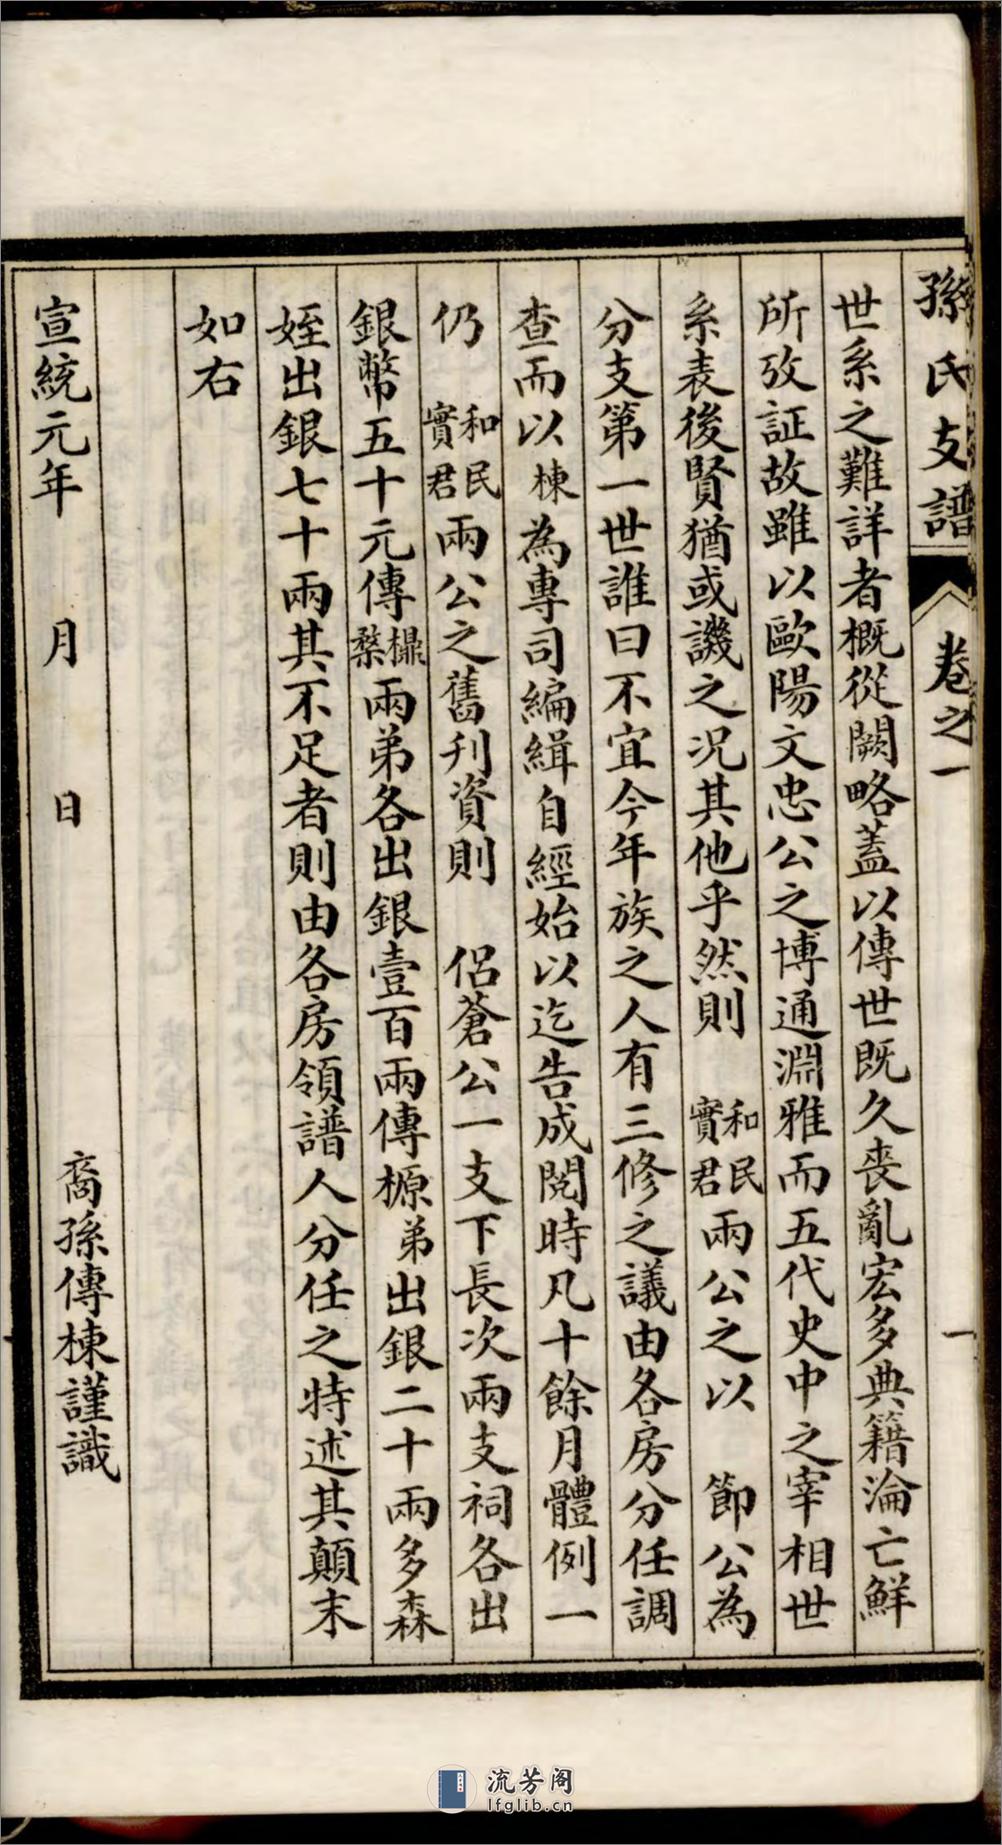 孫氏支譜 卷之一 一
世系之難詳者概從闕略蓋以傳世既久喪亂宏多典籍淪亡鮮
所攷証故雖以歐陽文忠公之博通淵雅而五代史中之宰相世
系表後賢猶或譏之况其他乎然則 和民實君兩公之以 節公為
分支第一世誰曰不宜今年族之人有三修之議由各房分任調
查而以棟為專司編緝自經始以迄告成閱時凡十餘月體例一
仍 和民實君兩公之舊刋資則 侶蒼公一支下長次兩支祠各出
銀幣五十元傳橸棃兩弟各出銀壹百兩傳榞弟出銀二十兩多森
姪出銀七十兩其不足者則由各房領譜人分任之特述其顛末
如右
宣統元年 月 日 裔孫傳棟謹識
流芳阁
lfglib.cn